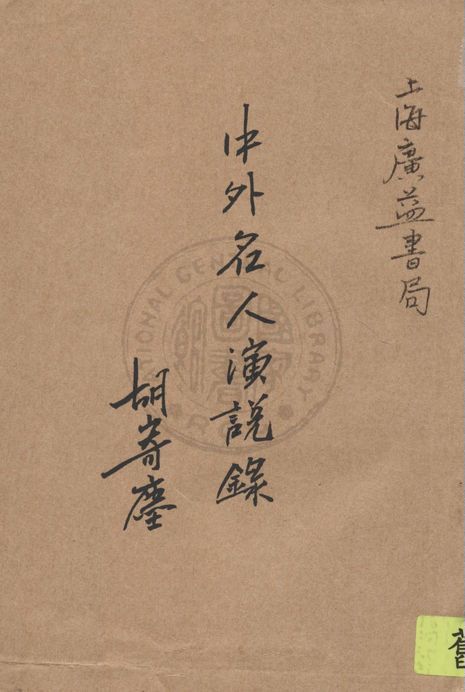 上海廣益書局
中外名人演說錄
胡寄塵
NATIONAL CENTRAL LIBRARY
舊